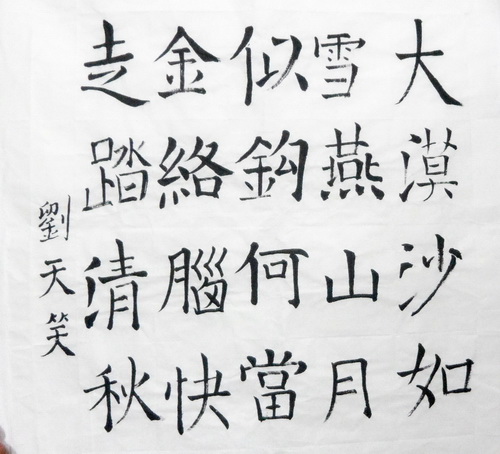 大漠沙如
雪燕山月
似鈎何當
金絡腦快
走踏清秋
劉天笑